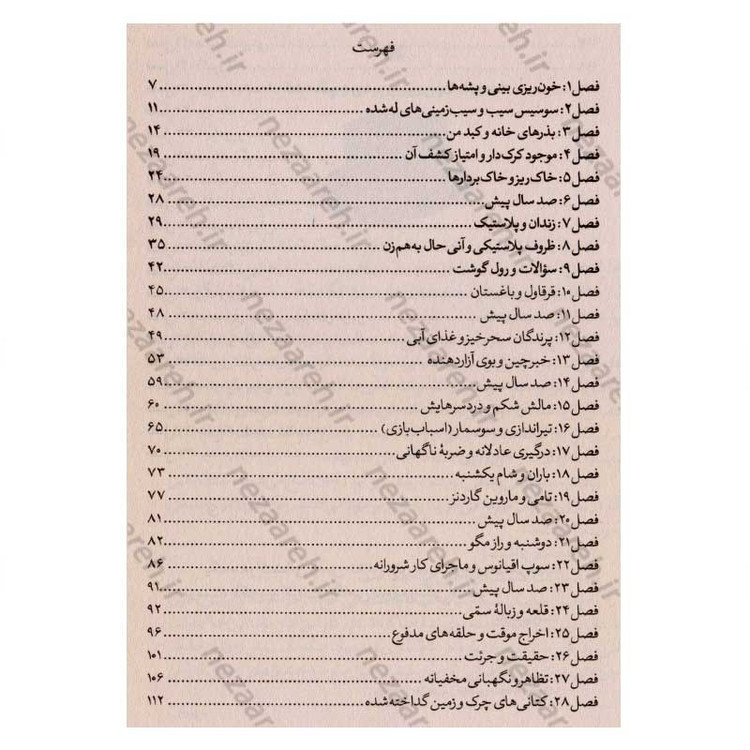 فهرست
فصل ۱: خون‌ریزی بینی و پشه‌ها ........ ۷
فصل ۲: سوسیس سیب و سیب‌زمینی‌های له‌شده ........ ۱۱
فصل ۳: بذرهای خانه و کبد من ........ ۱۴
فصل ۴: موجود کرک‌دار و امتیاز کشف آن ........ ۱۹
فصل ۵: خاک‌ریز و خاک‌بردارها ........ ۲۴
فصل ۶: صد سال پیش ........ ۲۸
فصل ۷: زندان و پلاستیک ........ ۲۹
فصل ۸: ظروف پلاستیکی و آنی حال به‌هم‌زن ........ ۳۵
فصل ۹: سؤالات و رول گوشت ........ ۴۲
فصل ۱۰: قرقاول و باغستان ........ ۴۵
فصل ۱۱: صد سال پیش ........ ۴۸
فصل ۱۲: پرندگان سحرخیز و غذای آبی ........ ۴۹
فصل ۱۳: خبرچین و بوی آزاردهنده ........ ۵۳
فصل ۱۴: صد سال پیش ........ ۵۹
فصل ۱۵: مالش شکم و دردسرهایش ........ ۶۰
فصل ۱۶: تیراندازی و سوسمار (اسباب‌بازی) ........ ۶۵
فصل ۱۷: درگیری عادلانه و ضربهٔ ناگهانی ........ ۷۰
فصل ۱۸: باران و شام یکشنبه ........ ۷۳
فصل ۱۹: تامی و ماروین گاردنز ........ ۷۷
فصل ۲۰: صد سال پیش ........ ۸۱
فصل ۲۱: دوشنبه و راز مگو ........ ۸۲
فصل ۲۲: سوپ اقیانوس و ماجرای کار شرورانه ........ ۸۶
فصل ۲۳: صد سال پیش ........ ۹۱
فصل ۲۴: قلعه و زبالهٔ سمّی ........ ۹۲
فصل ۲۵: اخراج موقت و حلقه‌های مدفوع ........ ۹۶
فصل ۲۶: حقیقت و جرئت ........ ۱۰۱
فصل ۲۷: تظاهر و نگهبانی مخفیانه ........ ۱۰۶
فصل ۲۸: کتانی‌های چرک و زمین گداخته‌شده ........ ۱۱۲
nezaareh.ir